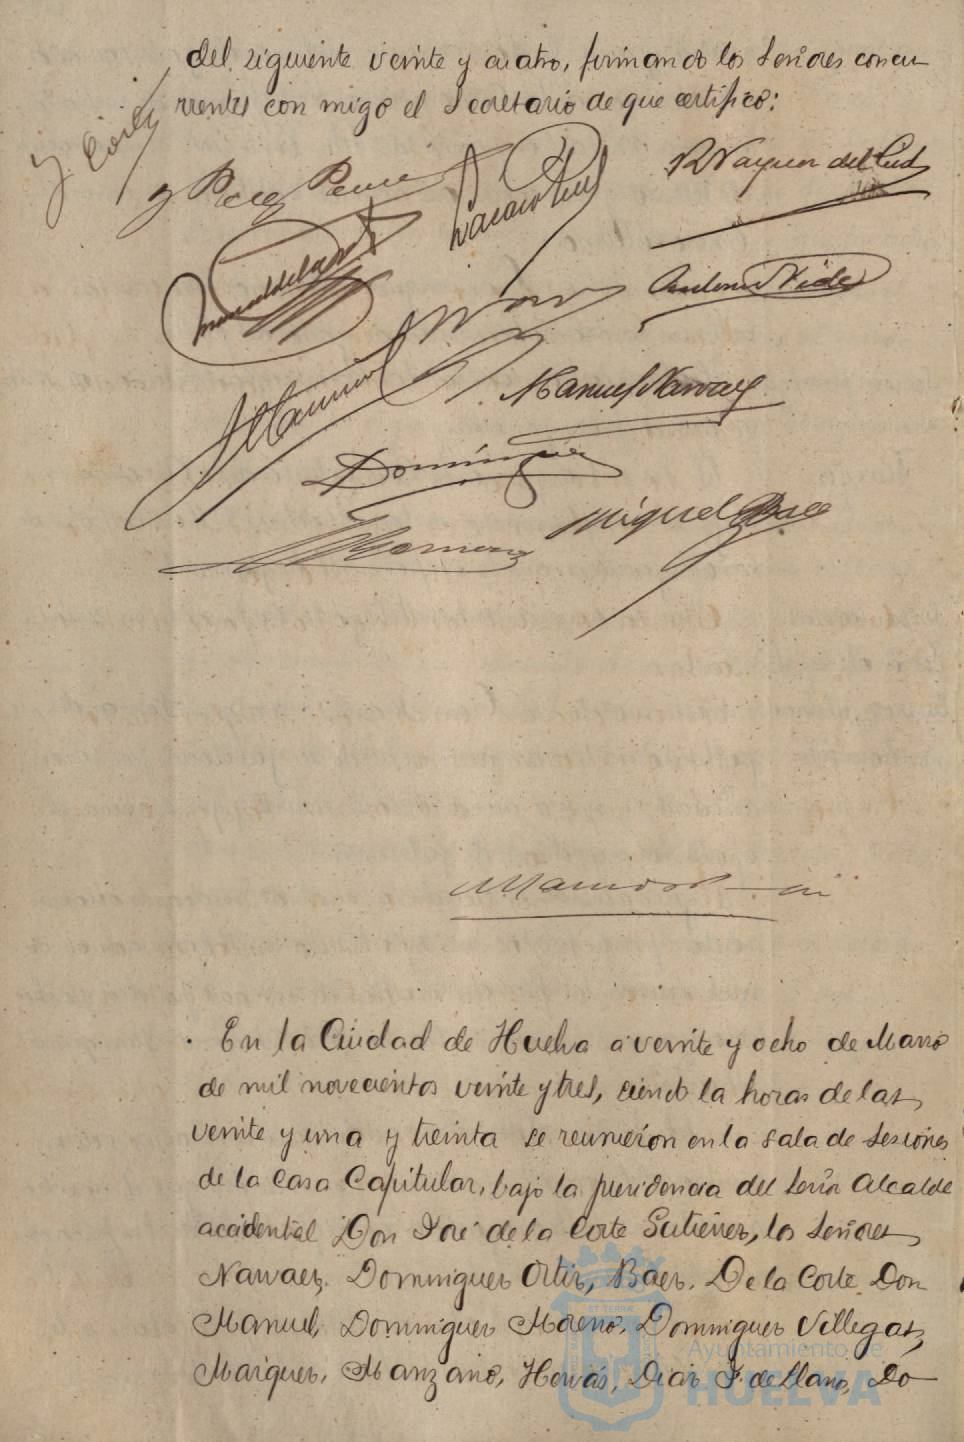 del siguiente veinte y cuatro, firmando los Señores concu
rrentes con migo el Secretario de que certifico:
R Vazquez del
Antonio Vides
Manuel Narvaez
Dominguez
Miguel Baez
En la Ciudad de Huelva a veinte y ocho de Marzo
de mil novecientos veinte y tres, siendo la horas de las
veinte y una y treinta se reunieron en la sala de Sesiones
de la Casa Capitular, bajo la presidencia del Señor Alcalde
accidental Don José de la Corte Gutierrez, los Señores
Narvaez, Dominguez Ortiz, Baez, De la Corte Don
Manuel, Dominguez Moreno, Dominguez Villegas,
Marquez, Manzano, Hervás, Diaz F. de Llano, Do
Ayuntamiento de
HUELVA